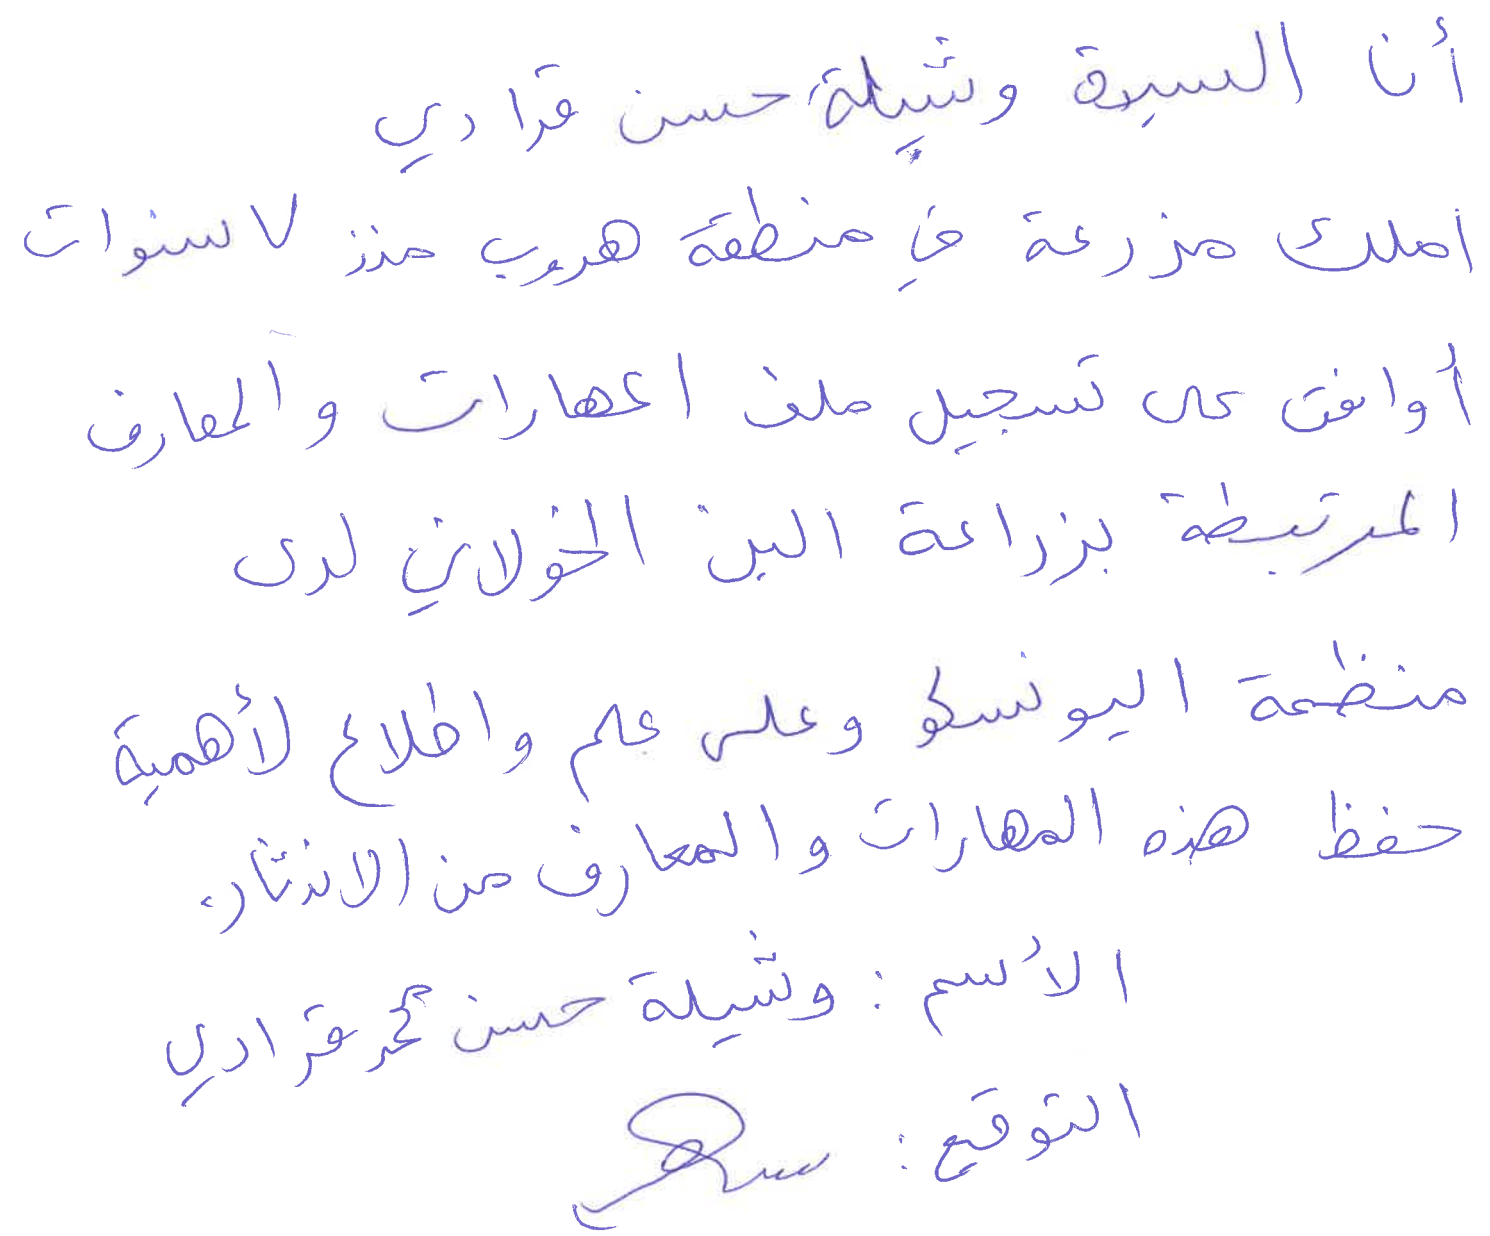 أنا السيدة وشيلة حسن قرادي
املك مزرعة في منطقة هروب منذ ٧ سنوات
أوافق على تسجيل ملف المهارات والمعارف
المرتبطة بزراعة البن الخولاني لدى
منظمة اليونسكو وعلى علم واطلاع لأهمية
حفظ هذه المهارات والمعارف من الاندثار.
الأسم : وشيلة حسن محمد قرادي
التوقيع :